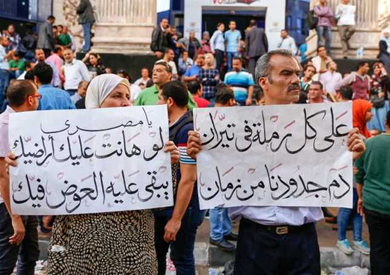 على كل رملة في نيران
دم جدودنا من زمان
يا مصري
لو هانت عليك أراضيك
يبقى عليه العوض فيك